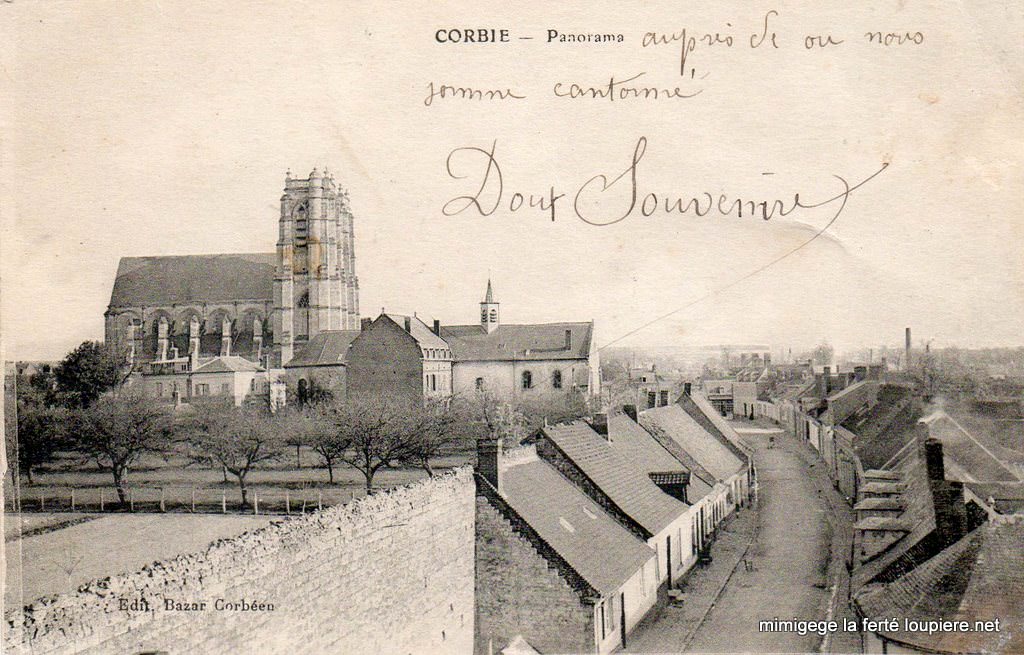 CORBIE — Panorama auprès de ou nous
somme cantonné
Doux Souvenire
Edit. Bazar Corbéen
mimigege la ferté loupiere.net